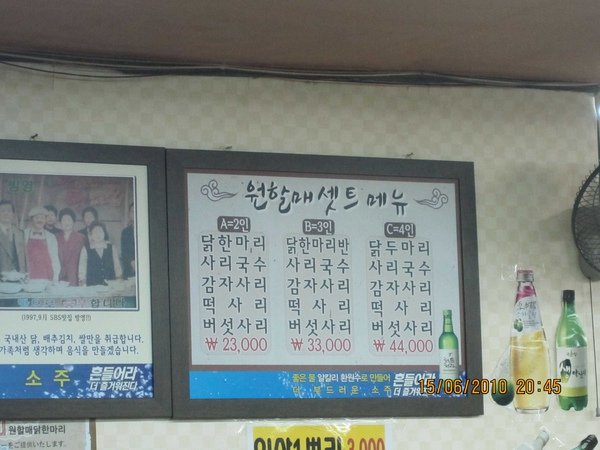 원할매 셋트 메뉴
A=2인
닭한마리
사리국수
감자사리
떡사리
버섯사리
₩ 23,000
B=3인
닭한마리반
사리국수
감자사리
떡사리
버섯사리
₩ 33,000
C=4인
닭두마리
사리국수
감자사리
떡사리
버섯사리
₩ 44,000
좋은 물 알칼리 환원수로 만들어
더 부드러운 소주
흔들어라
더 즐거워진다.
방영
(1997.9月 SBS맛집 방영!!)
국내산 닭, 배추김치, 쌀만을 취급합니다.
가족처럼 생각하며 음식을 만들겠습니다.
소주
흔들어라
더 즐거워진다.
원할매닭한마리
をご提供いたします.
3,000
15/06/2010 20:45